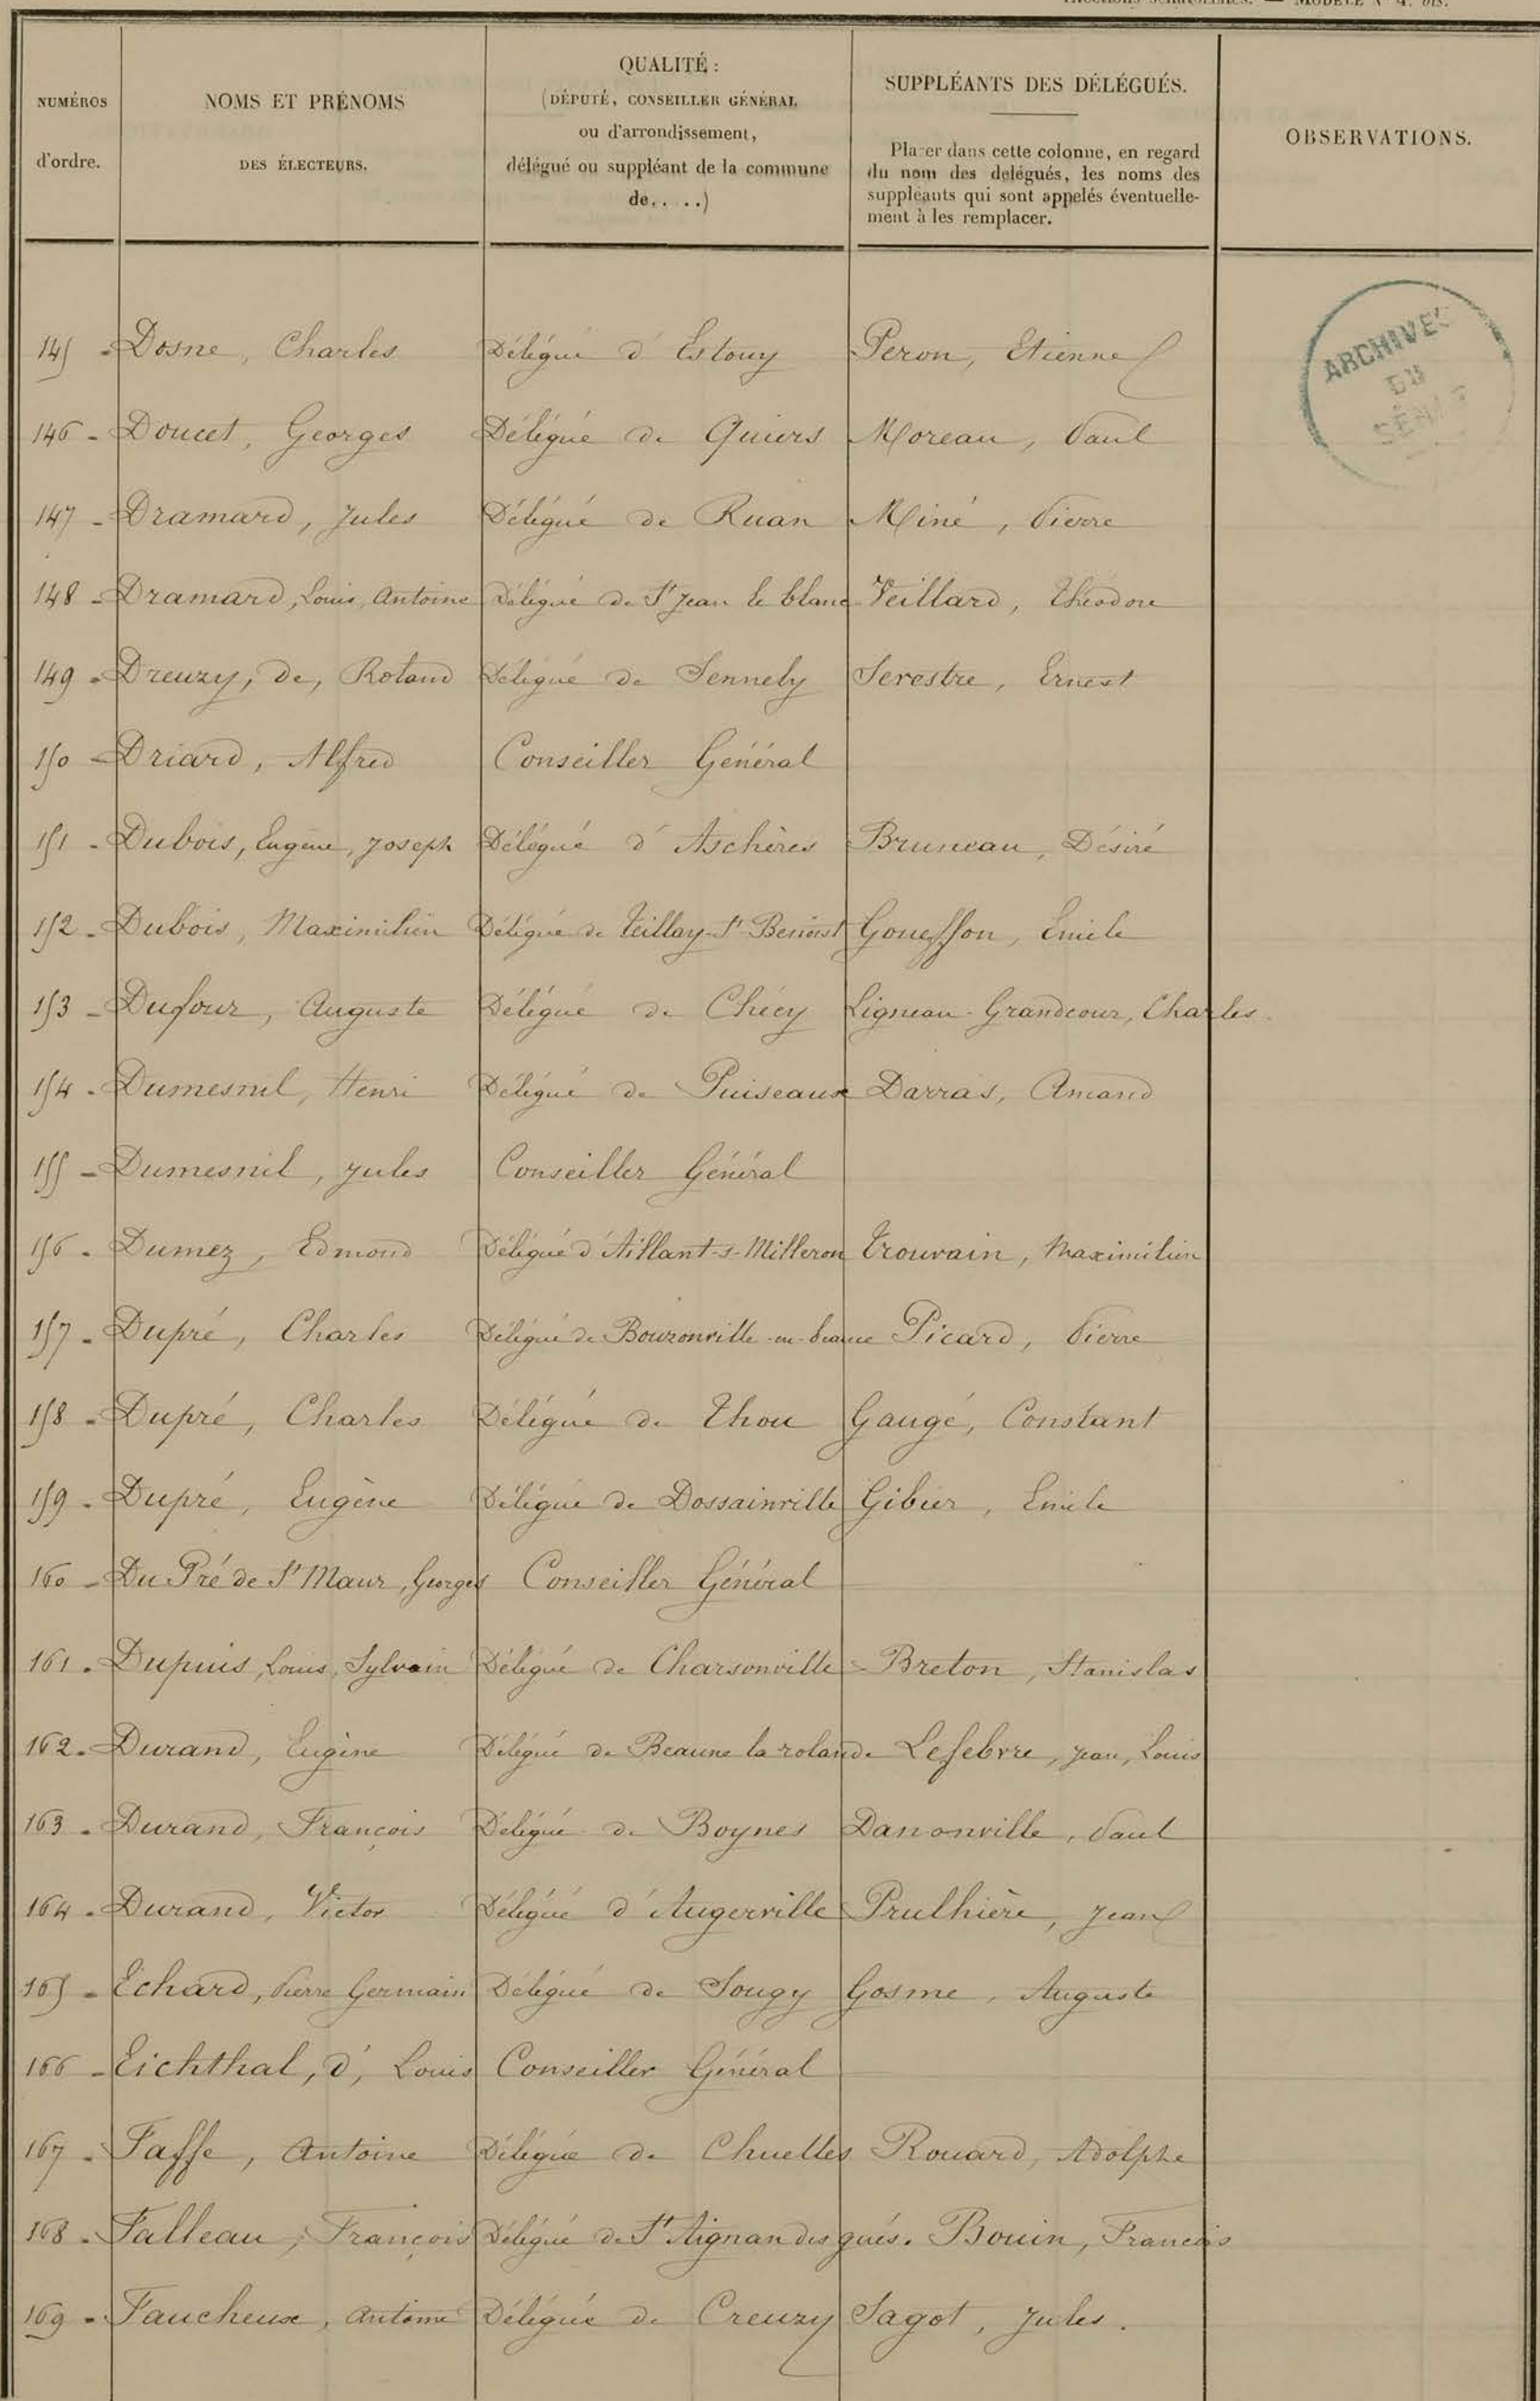 Élections sénatoriales. — MODÈLE N° 4. bis.
NUMÉROS
d'ordre.
NOMS ET PRÉNOMS
DES ÉLECTEURS.
QUALITÉ :
(DÉPUTÉ, CONSEILLER GÉNÉRAL
ou d'arrondissement,
délégué ou suppléant de la commune
de. . . ..)
SUPPLÉANTS DES DÉLÉGUÉS.
Placer dans cette colonne, en regard
du nom des délégués, les noms des
suppléants qui sont appelés éventuelle-
ment à les remplacer.
OBSERVATIONS.
ARCHIVES
DU
SÉNAT
145 - Dosne, Charles Délégué d'Estouy Peron, Etienne
146 - Doucet, Georges Délégué de Quiers Moreau, Paul
147 - Dramard, Jules Délégué de Ruan Miné, Pierre
148 - Dramard, Louis, Antoine Délégué de St Jean le blanc Veillard, Théodore
149 - Dreuzy, de, Roland Délégué de Sennely Serestre, Ernest
150 - Driard, Alfred Conseiller Général
151 - Dubois, Eugène, Joseph Délégué d'Aschères Bruneau, Désiré
152 - Dubois, Maximilien Délégué de Teillay-St Benoist Goueffon, Emile
153 - Dufour, Auguste Délégué de Chécy Ligneau-Grandcour, Charles.
154 - Dumesnil, Henri Délégué de Puiseaux Darras, Amand
155 - Dumesnil, Jules Conseiller Général
156 - Dumez, Edmond Délégué d'Aillant-s-Milleron Trouvain, Maximilien
157 - Dupré, Charles Délégué de Bouzonville-en-beauce Picard, Pierre
158 - Dupré, Charles Délégué de Thou Gaugé, Constant
159 - Dupré, Eugène Délégué de Dossainville Gibier, Emile
160 - Du Pré de St Maur, Georges Conseiller Général
161 - Dupuis, Louis, Sylvain Délégué de Charsonville - Breton, Stanislas
162 - Durand, Eugène Délégué de Beaune la rolande Lefebvre, Jean, Louis
163 - Durand, François Délégué de Boynes Danonville, Paul
164 - Durand, Victor Délégué d'Augerville Prulhière, Jean
165 - Echard, Pierre Germain Délégué de Sougy Gosme, Auguste
166 - Eichthal, d', Louis Conseiller Général
167 - Faffe, Antoine Délégué de Chuelles Rouard, Adolphe
168 - Falleau, François Délégué de St Aignan des gués. Bouin, François
169 - Faucheux, Antoine Délégué de Creuzy Sagot, Jules.